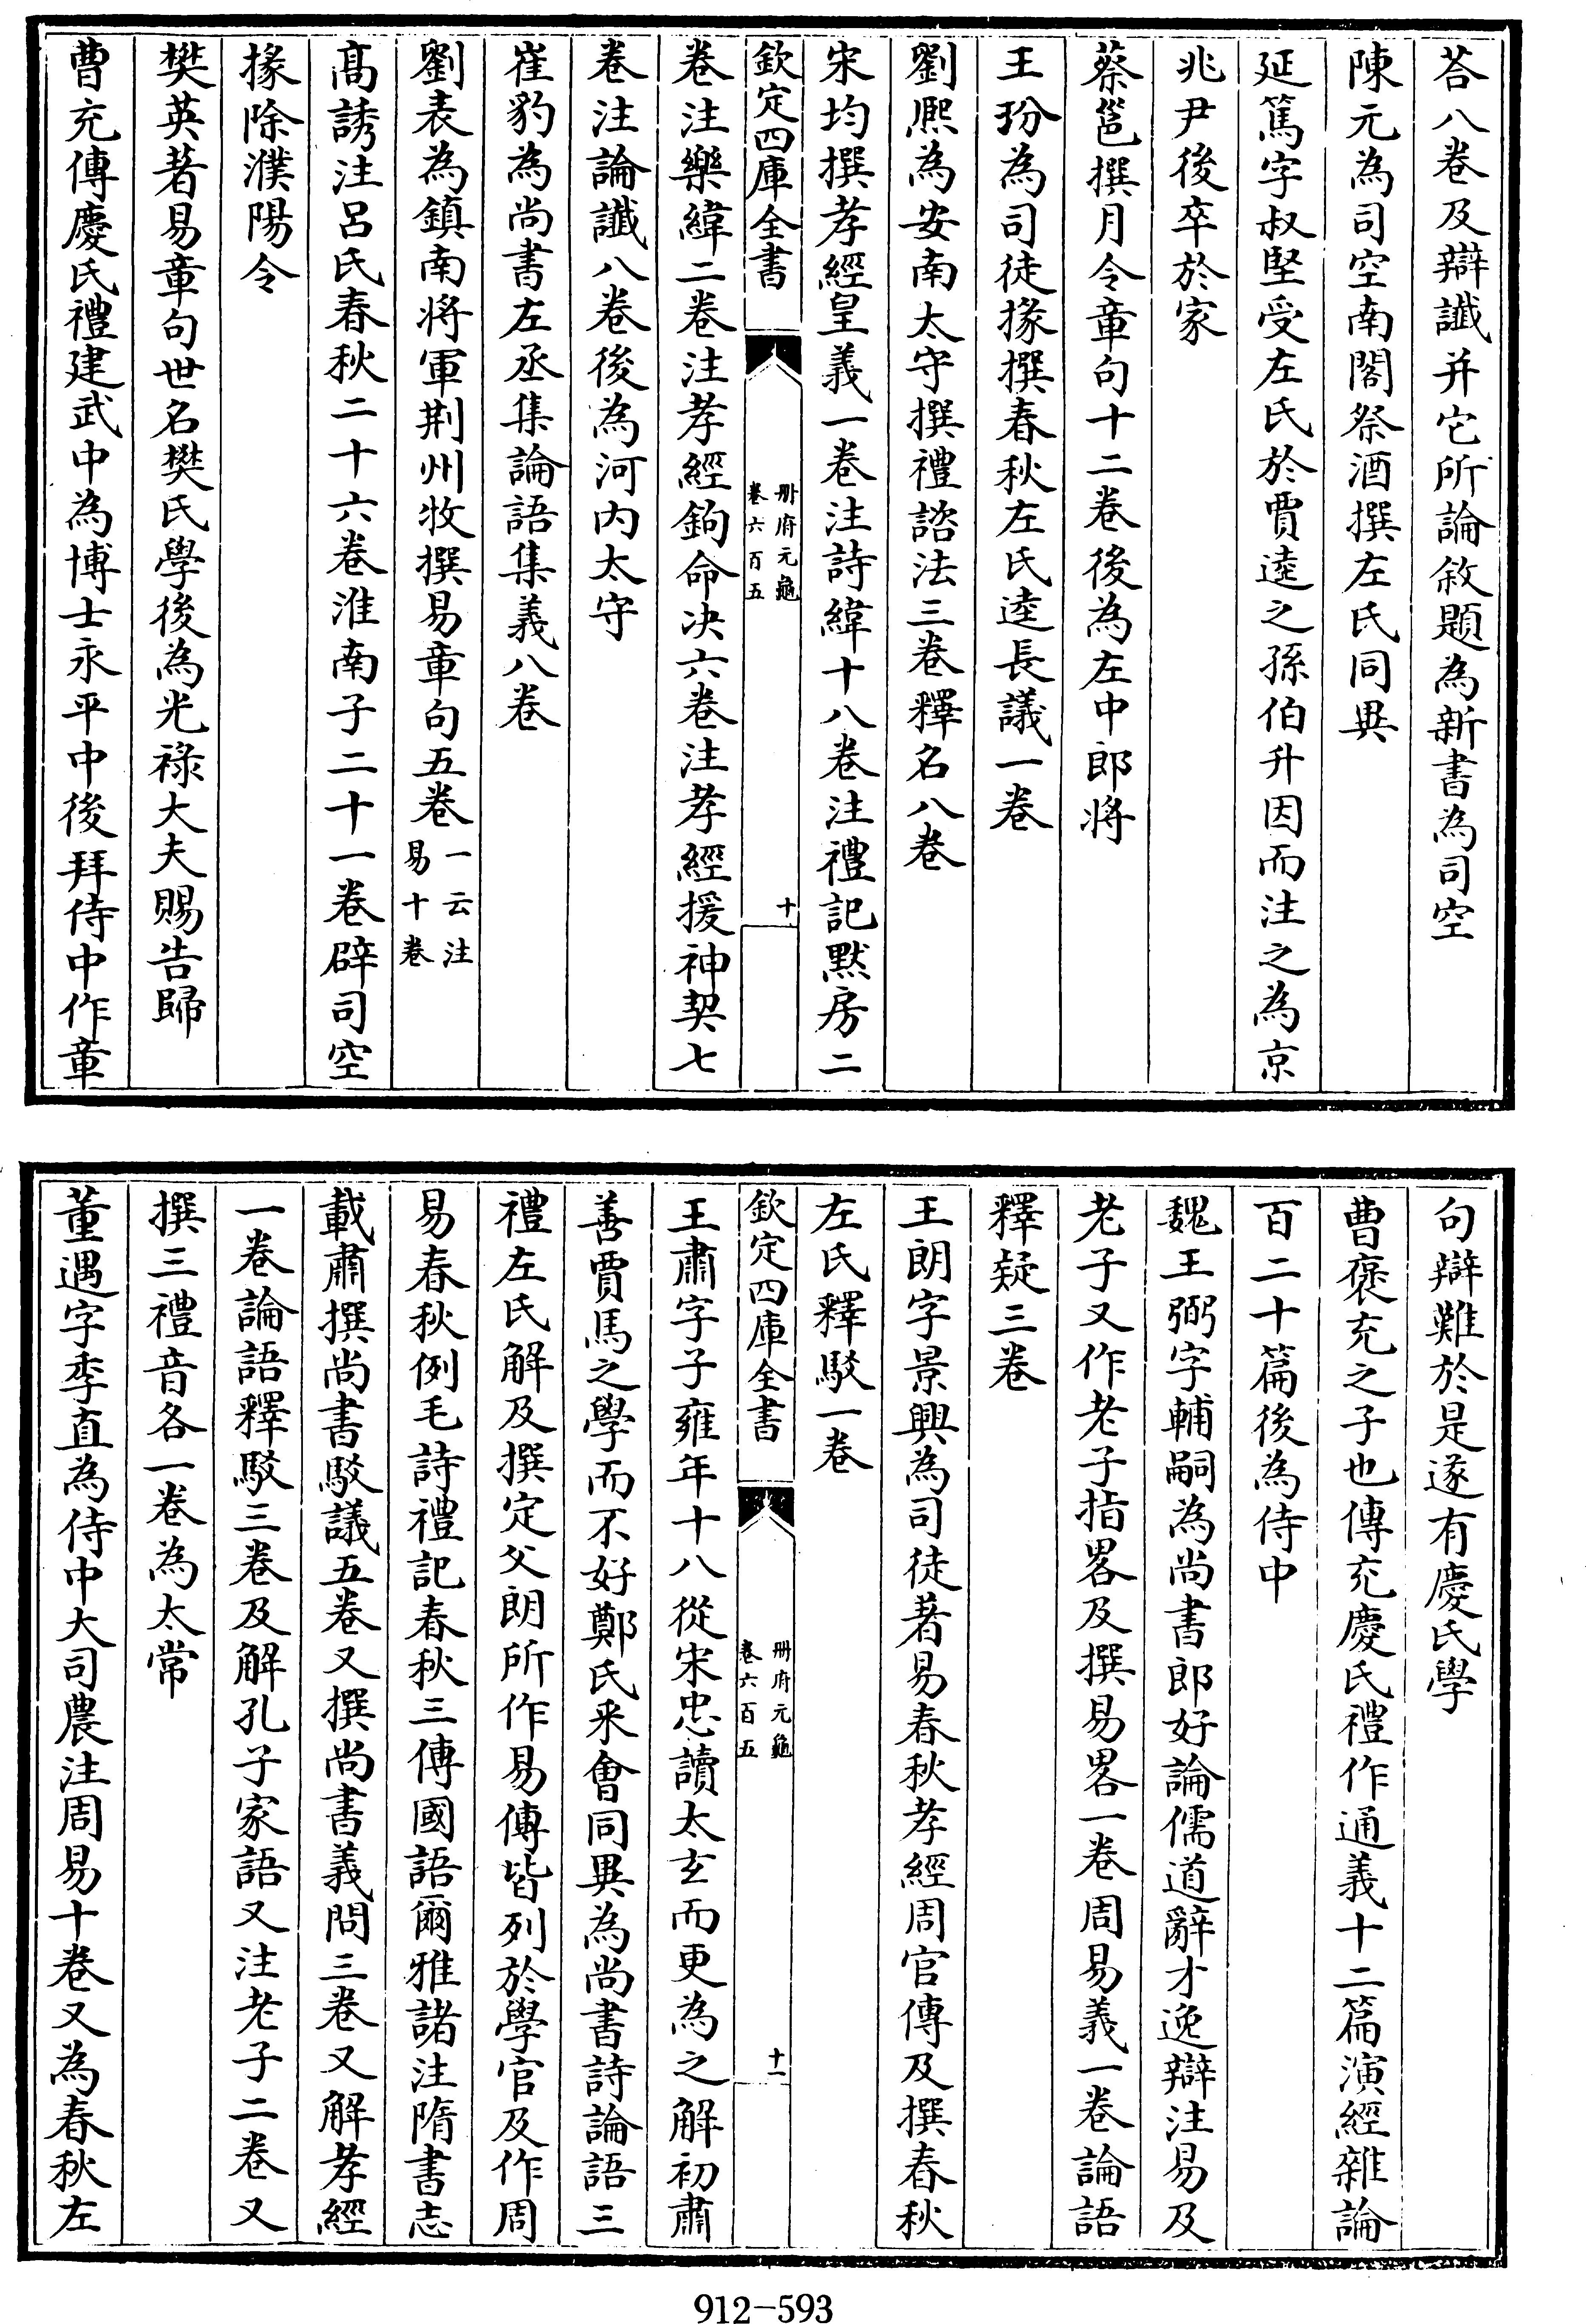 荅八卷及辯讖并它所論敘題為新書為司空
陳元為司空南閣祭酒撰左氏同異
延篤字叔堅受左氏於賈逵之孫伯升因而注之為京
兆尹後卒於家
蔡邕撰月令章句十二卷後為左中郎將
王玢為司徒掾撰春秋左氏逵長議一卷
劉熈為安南太守撰禮諡法三卷釋名八卷
宋均撰孝經皇義一卷注詩緯十八卷注禮記黙房二
欽定四庫全書
冊府元龜
卷六百五
十
卷注樂緯二卷注孝經鉤命决六卷注孝經援神契七
卷注論讖八卷後為河内太守
崔豹為尚書左丞集論語集義八卷
劉表為鎮南將軍荆州牧撰易章句五卷一云注
易十卷
髙誘注呂氏春秋二十六卷淮南子二十一卷辟司空
掾除濮陽令
樊英著易章句世名樊氏學後為光祿大夫賜告歸
曹充傳慶氏禮建武中為博士永平中後拜侍中作章
句辯難於是遂有慶氏學
曹褒充之子也傳充慶氏禮作通義十二篇演經雜論
百二十篇後為侍中
魏王弼字輔嗣為尚書郎好論儒道辭才逸辯注易及
老子又作老子指畧及撰易畧一卷周易義一卷論語
釋疑三卷
王朗字景興為司徒著易春秋孝經周官傳及撰春秋
左氏釋駁一卷
欽定四庫全書
冊府元龜
卷六百五
十一
王肅字子雍年十八從宋忠讀太玄而更為之解初肅
善賈馬之學而不好鄭氏采會同異為尚書詩論語三
禮左氏解及撰定父朗所作易傳皆列於學官及作周
易春秋例毛詩禮記春秋三傳國語爾雅諸注隋書志
載肅撰尚書駁議五卷又撰尚書義問三卷又解孝經
一卷論語釋駁三卷及解孔子家語又注老子二卷又
撰三禮音各一卷為太常
董遇字季直為侍中大司農注周易十卷又為春秋左
912-593